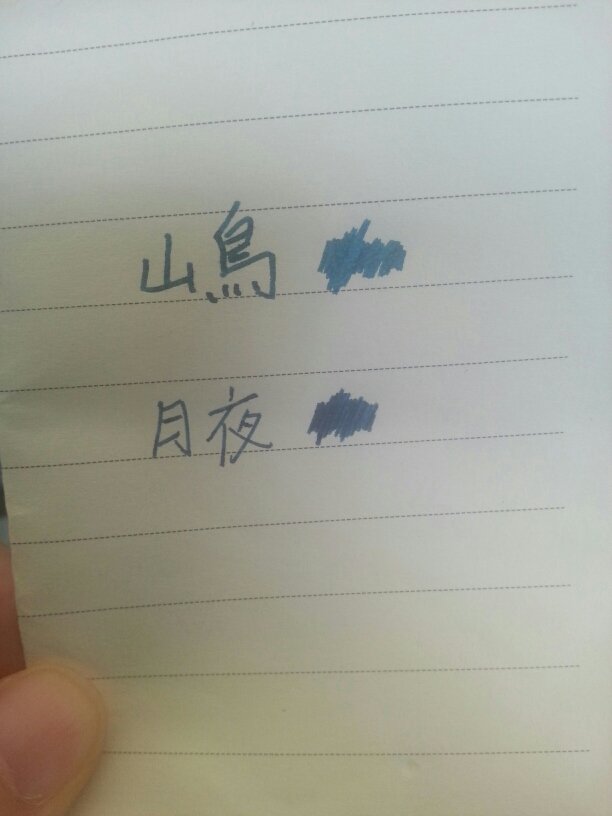 山鳥
月夜